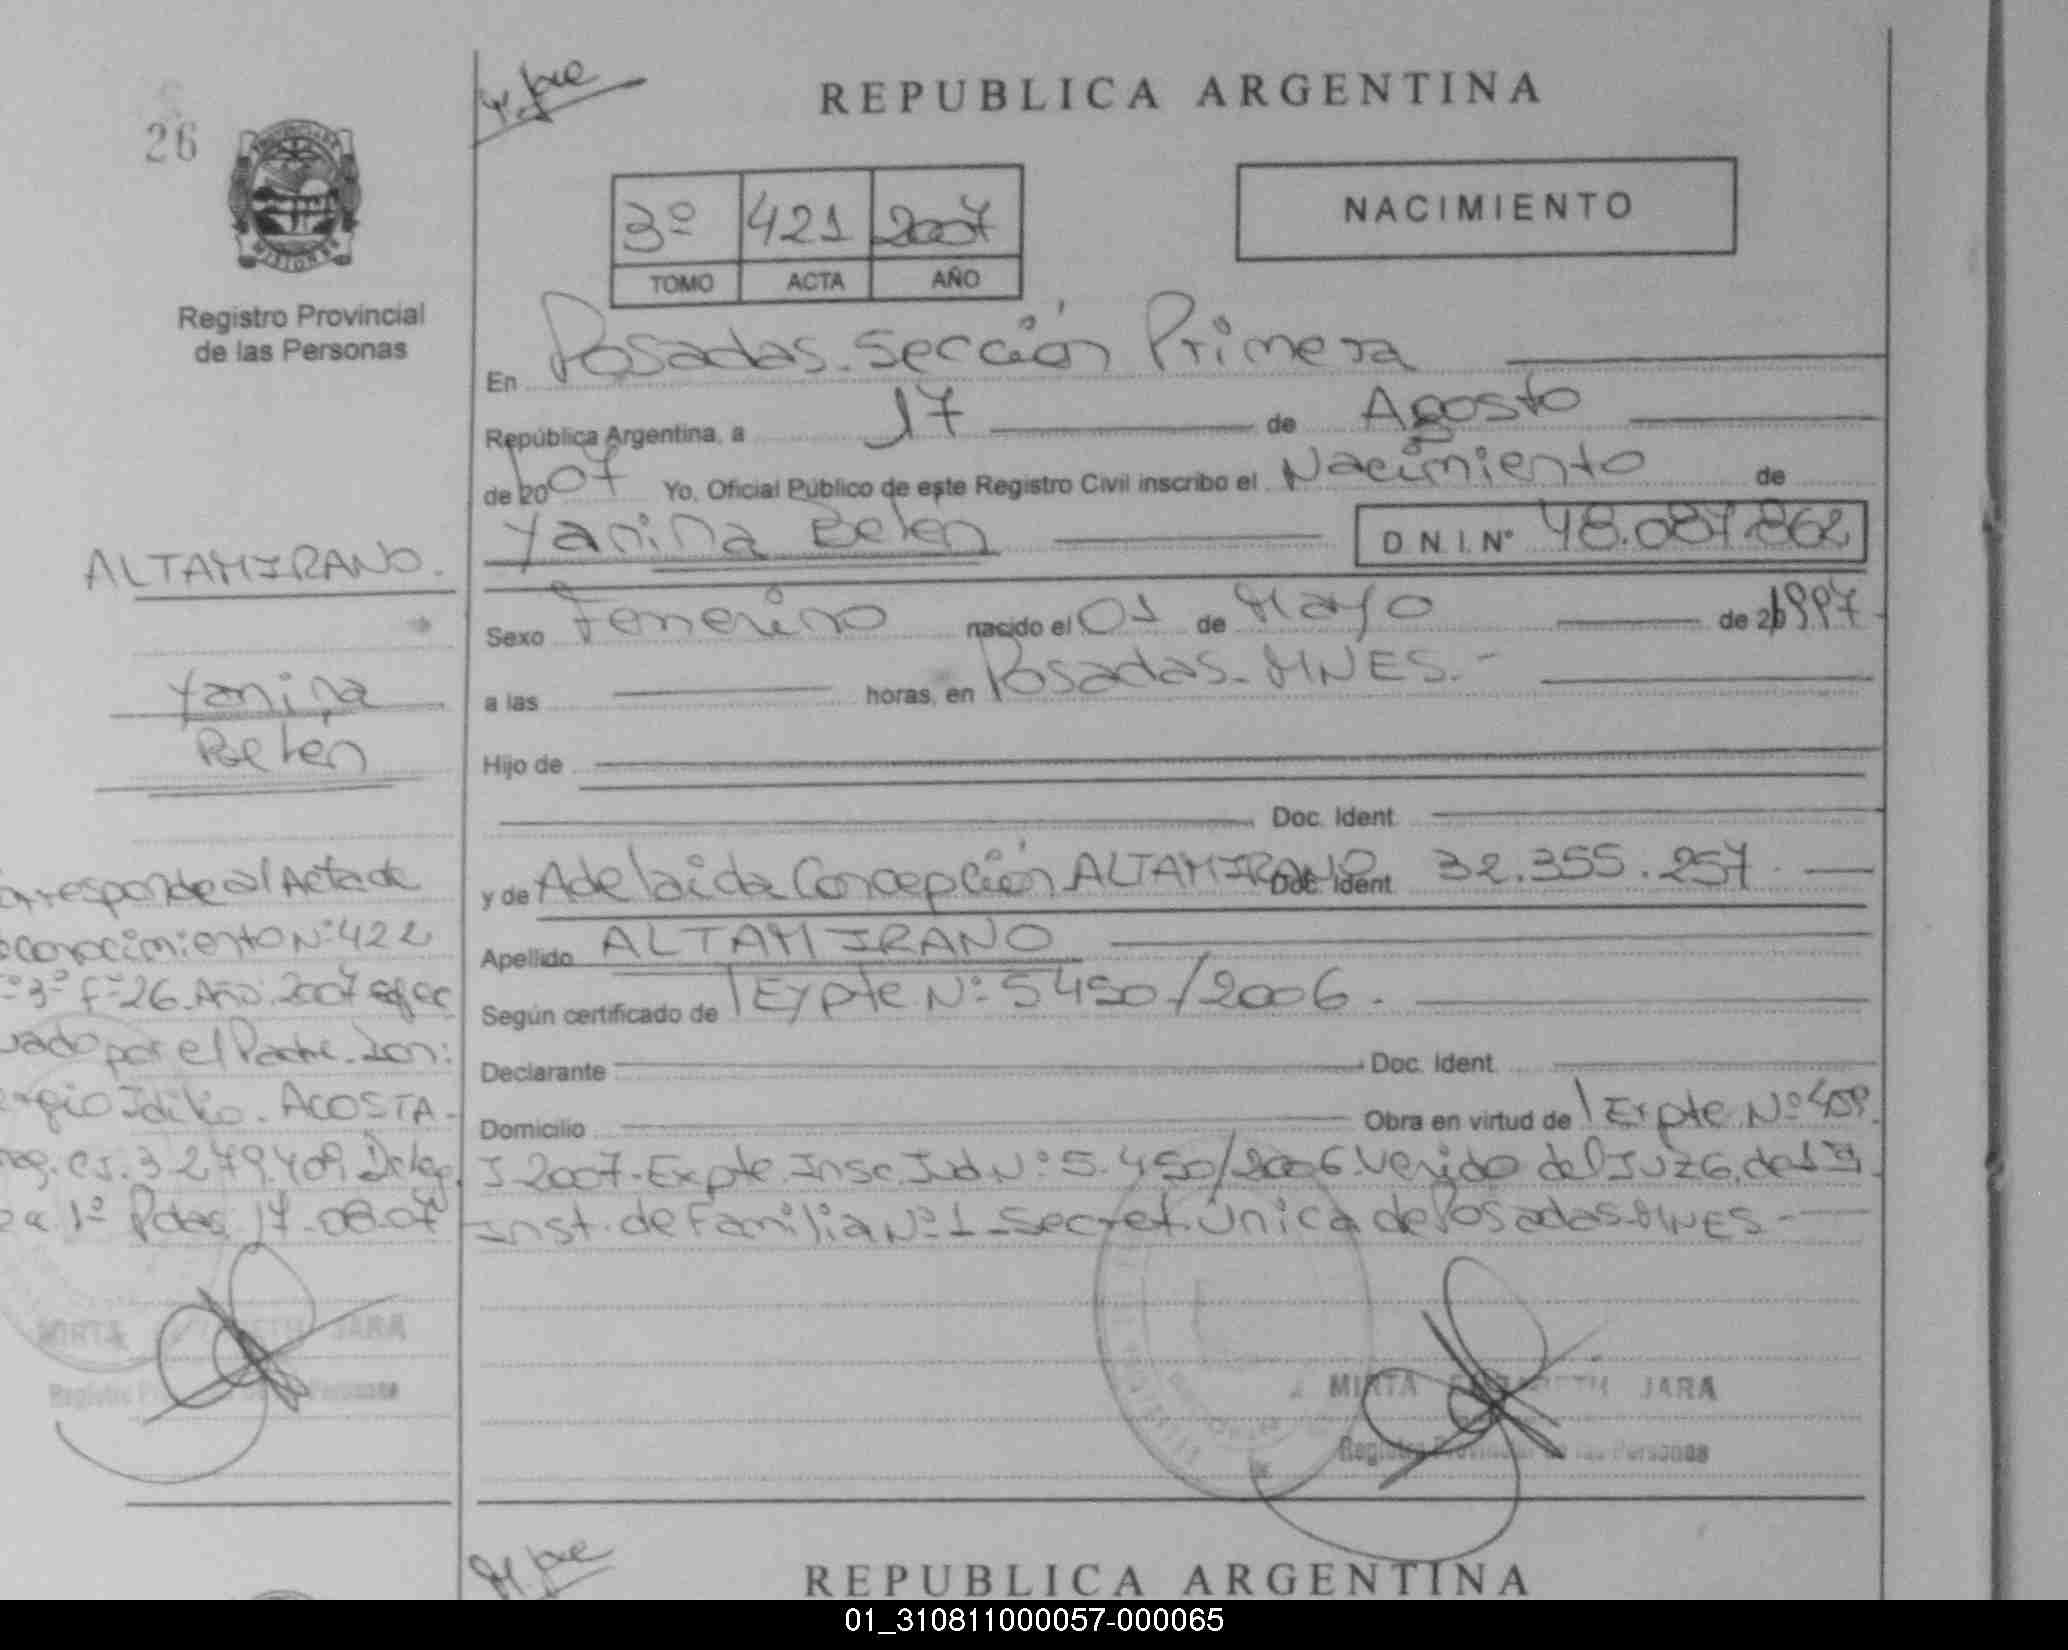 26
PROVINCIA DE
MISIONES
Registro Provincial
de las Personas
REPUBLICA ARGENTINA
3º 421 2007
TOMO ACTA AÑO
NACIMIENTO
En Posadas. Sección Primera
República Argentina, a 17 de Agosto
de 2007 Yo, Oficial Público de este Registro Civil inscribo el Nacimiento de
Yanina Belen D N.I. Nº 48.087.862
Sexo Femenino nacido el 01 de Mayo de 1997
a las horas, en Posadas. MNES.-
Hijo de
Doc. Ident.
y de Adelaida Concepción ALTAMIRANO Doc. Ident. 32.355.257.
Apellido ALTAMIRANO
Según certificado de Expte Nº 5450/2006.
Declarante Doc. Ident.
Domicilio Obra en virtud de Expte Nº 409.
J. 2007. Expte. Insc. Jud. Nº 5.450/2006. Venido del Juzg. de 1ª
Inst. de Familia Nº 1 - Secret. Única de Posadas. MNES -
ALTAMIRANO.
Yanina
Belén
orresponde al Acta de
conocimiento Nº 422
Tº 3º Fº 26. Año: 2007 efec
uado por el Padre. Don:
ergio Idilio. ACOSTA.
neg. CI. 3 279.409, Deleg.
1º Pdas. 17-08-07
MIRTA JARA
Registro Personas
MIRTA ELIZABETH JARA
Registro Provincial de las Personas
REPUBLICA ARGENTINA
01_310811000057-000065